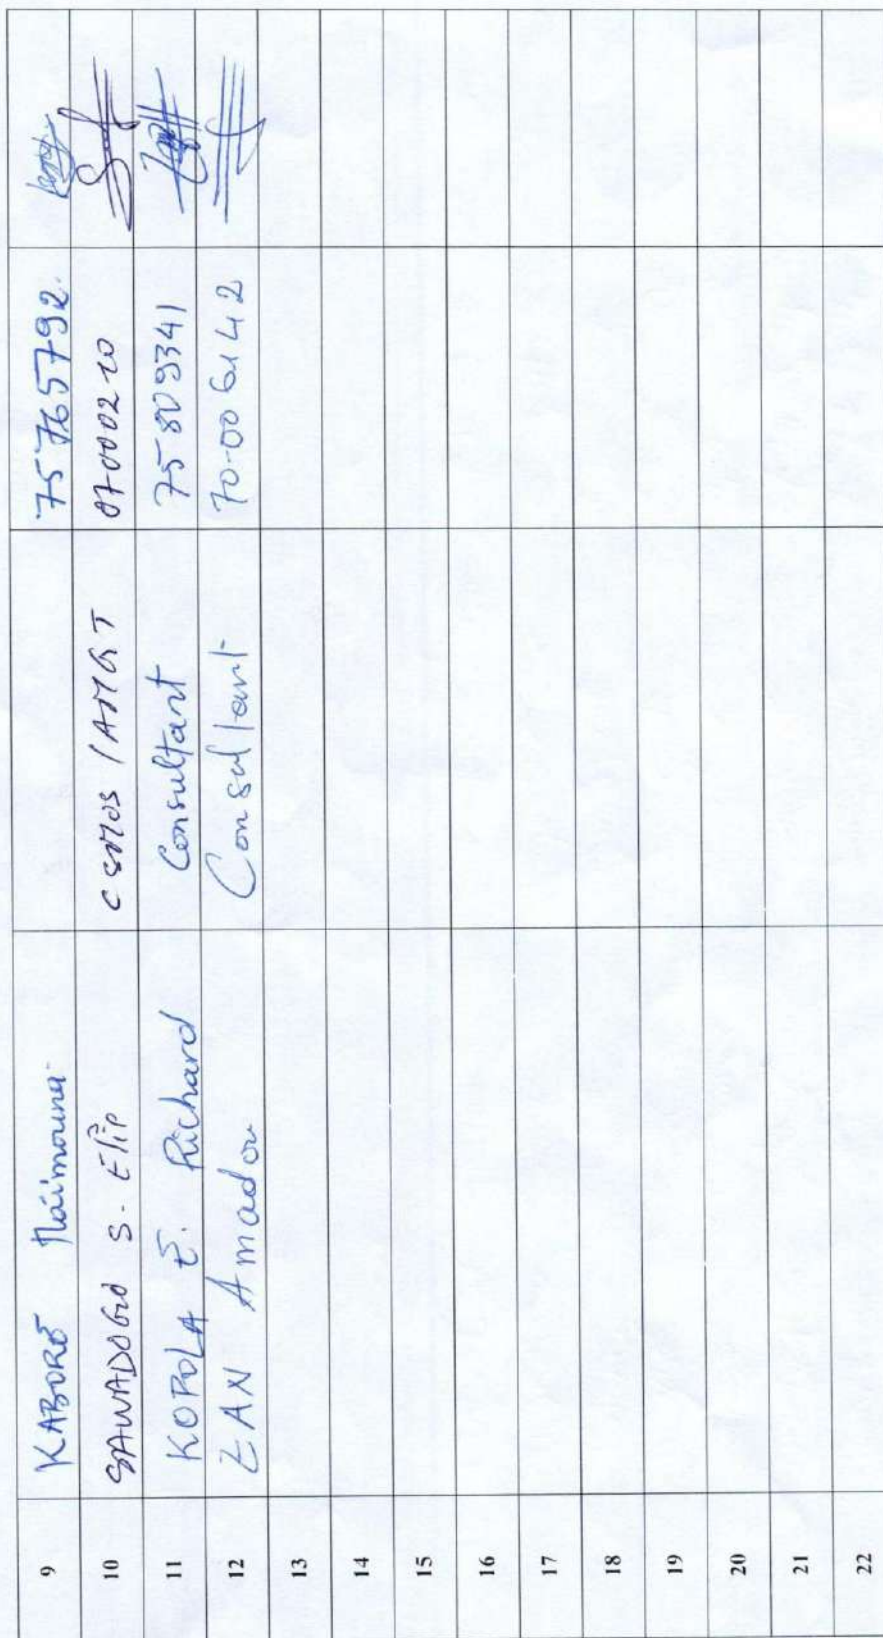 9 KABORÉ Maïmouna 75765792
10 SAWADOGO S. Elie 07000210
11 KOPOLA E. Richard Consultant 75809341
12 ZAN Amadou Consultant 70-006142
13
14
15
16
17
18
19
20
21
22